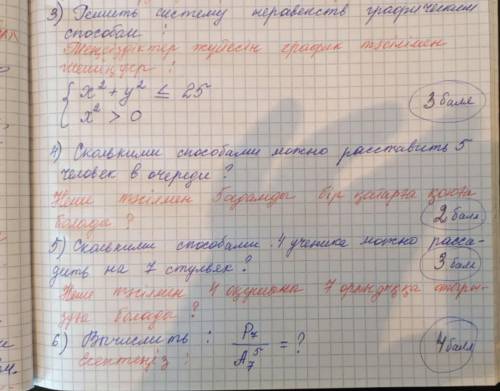 3) Решить систему неравенств графическим
способом :
Теңсіздіктер жүйесін график тәсілімен
шешіңдер :
{ x² + y² ≤ 25
x² > 0
3 балл
4) Сколькими способами можно расставить 5
человек в очереди ?
Неше тәсілмен 5 адамды бір қатарға қоюға
болады ?
2 балл
5) Сколькими способами 4 ученика можно расса-
дить на 7 стульях ?
3 балл
Неше тәсілмен 4 оқушыны 7 орындыққа отыры-
зуға болады ?
6) Вычислить : P₇ / A₇⁵ = ?
есептеңіз :
4 балл